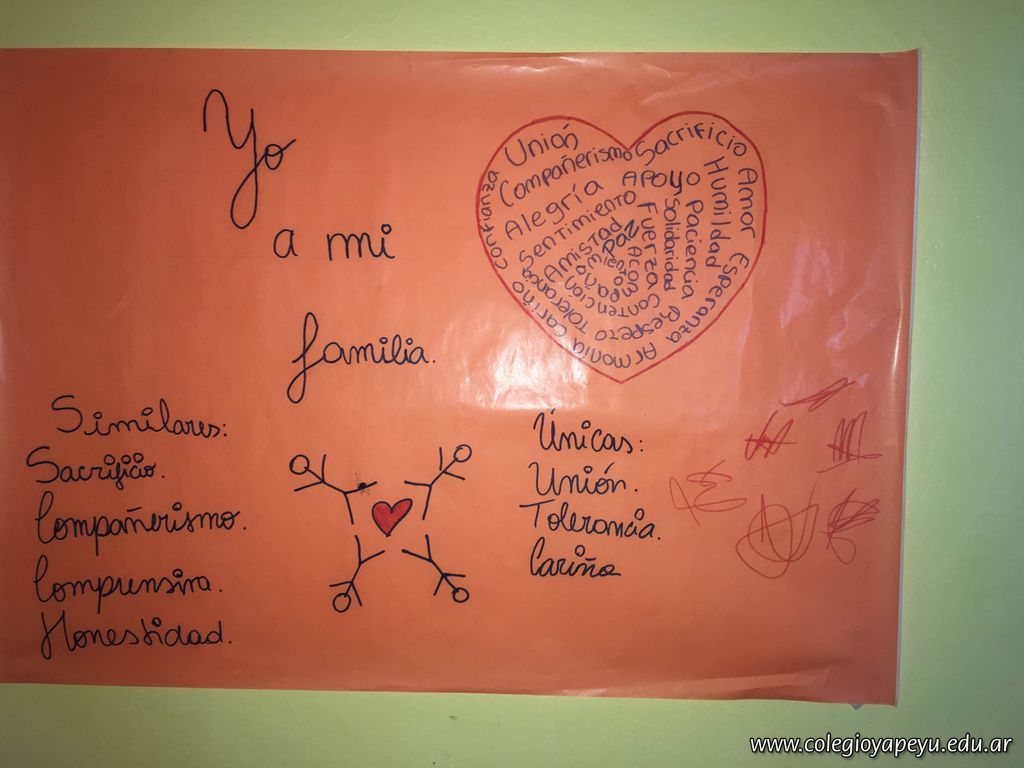 Yo
a mi
familia.
Unión
Compañerismo
Sacrificio
Amor
Confianza
Alegría
Apoyo
Humildad
Sentimiento
Paciencia
Solidaridad
Fuerza
Amistad
Paz
Esperanza
Contención
Tolerancia
Respeto
Cariño
Armonía
Similares:
Sacrificio.
Compañerismo.
Comprensiva.
Honestidad.
Únicas:
Unión.
Tolerancia.
Cariño
www.colegioyapeyu.edu.ar